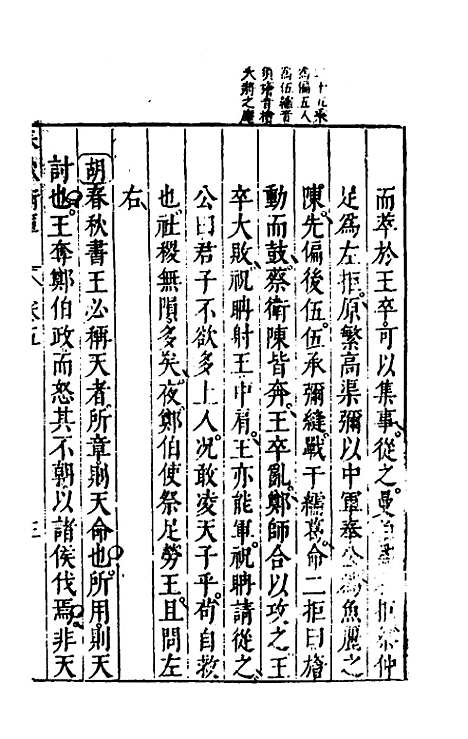 二十五乘
爲偏五人
爲伍繻音
須旝音檜
大將之麾
而萃於王卒可以集事從之曼伯爲右拒祭仲
足爲左拒原繁高渠彌以中軍奉公爲魚麗之
陳先偏後伍伍承彌縫戰于繻葛命二拒曰旝
動而鼓蔡衛陳皆奔王卒亂鄭師合以攻之王
卒大敗祝聃射王中肩王亦能軍祝聃請從之
公曰君子不欲多上人况敢凌天子乎苟自救
也社稷無隕多矣夜鄭伯使祭足勞王且問左
右
胡春秋書王必稱天者所章則天命也所用則天
討也王奪鄭伯政而怒其不朝以諸侯伐焉非天
卷五
三